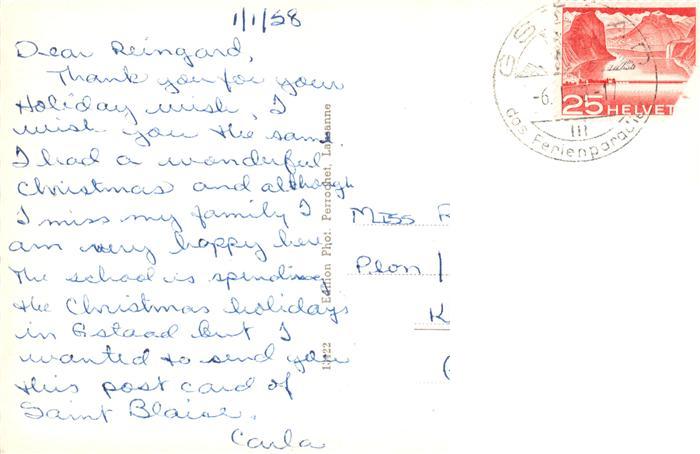 1/1/58
Dear Reingard,
Thank you for your
Holiday wish, I
wish you the same
I had a wonderful
Christmas and although
I miss my family I
am very happy here
The school is spending
the Christmas holidays
in Gstaad but I
wanted to send you
this post card of
Saint Blaise.
Carla
13422 Edition Phot. Perrochet, Lausanne
Miss
Plon
K
GSTAAD
-6.
III
das Ferienparadies
25 HELVETIA